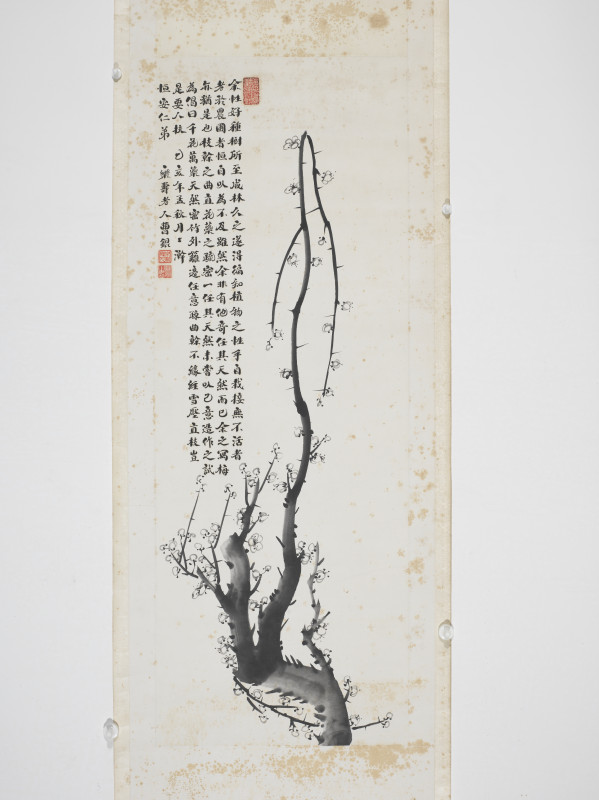 余性好種樹所至成林久之遂得徧知植物之性手自栽接無不活者
老於農圃者恒自以為不及雖然余非有他奇任其天然而已余之寫梅
亦猶是也枝幹之曲直花蕊之疏密一任其天然未嘗以己意造作之試
為偈曰千花萬蕊天然密竹外籬邊任意疏曲幹不緣經雪壓直枝豈
是要人扶 乙亥年孟秋月上澣
恒 仁弟 樂壽老人曹錕